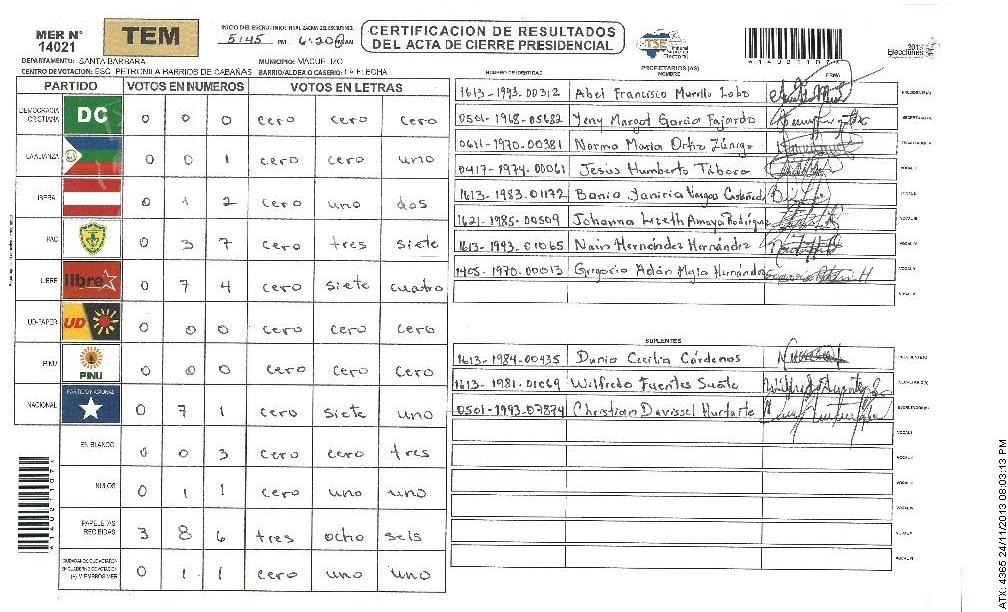 MER N°
14021
TEM
INICIO DEL ESCRUTINIO: FINALIZACION DEL ESCRUTINIO
5:45 PM 6:20 AM
CERTIFICACION DE RESULTADOS
DEL ACTA DE CIERRE PRESIDENCIAL
TSE Tribunal Supremo Electoral
Elecciones 2013
DEPARTAMENTO: SANTA BARBARA MUNICIPIO: MACUELIZO
CENTRO DE VOTACION: ESC. PETRONILA BARRIOS DE CABAÑAS BARRIO/ALDEA O CASERIO: LA FLECHA
PARTIDO VOTOS EN NUMEROS VOTOS EN LETRAS
DEMOCRACIA CRISTIANA DC 0 0 0 cero cero cero
LA ALIANZA 0 0 1 cero cero uno
0 1 2 cero uno dos
PAC 0 3 7 cero tres siete
LIBRE libre 0 7 4 cero siete cuatro
UD-FAPER UD 0 0 0 cero cero cero
PINU PINU 0 0 0 cero cero cero
NACIONAL PARTIDO NACIONAL 0 7 1 cero siete uno
EN BLANCO 0 0 3 cero cero tres
NULOS 0 1 1 cero uno uno
PAPELETAS RECIBIDAS 3 8 6 tres ocho seis
CIUDADANOS QUE VOTARON EN CUADERNO DE VOTACION (+) MIEMBROS MER 0 1 1 cero uno uno
NUMERO DE IDENTIDAD PROPIETARIOS (AS) NOMBRE FIRMA
1613-1993-00312 Abel Francisco Murillo Lobo PRESIDENTE(A)
0501-1968-05682 Yeny Margot Garcia Fajardo SECRETARIO(A)
0611-1970-00381 Norma Maria Ortiz Zúniga ESCRUTADOR(A)
0417-1974-00061 Jesus Humberto Tabora VOCAL I
1613-1983-01172 Bania Yaniria Vargas Castañeda VOCAL II
1621-1985-00509 Johanna Lizeth Amaya Rodriguez VOCAL III
1613-1993-01065 Nain Hernández Hernández VOCAL IV
1405-1970-00013 Gregorio Adán Mejia Hernández VOCAL V
VOCAL VI
SUPLENTES
1613-1984-00435 Dunia Cecilia Cárdenas PRESIDENTE(A)
1613-1981-01069 Wilfredo Fuentes SECRETARIO(A)
0501-1993-07874 Christian Davissel Hurtarte ESCRUTADOR(A)
VOCAL I
VOCAL II
VOCAL III
VOCAL IV
VOCAL V
VOCAL VI
ATX: 4365 24/11/2013 08:03:13 PM